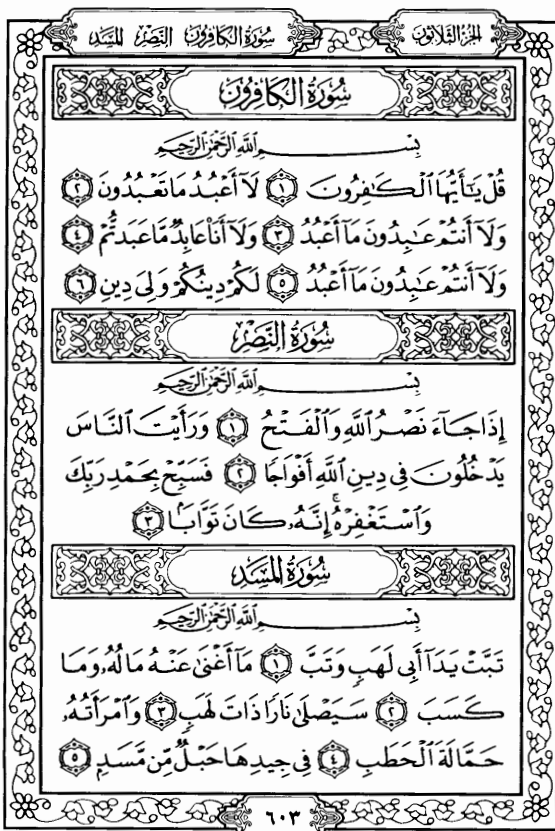 سُورَةُ الكَافِرُونَ النَّصْر المَسَد
الجُزْءُ الثَّلَاثُونَ
سُورَةُ الكَافِرُون
بِسْمِ اللَّهِ الرَّحْمَٰنِ الرَّحِيمِ
قُلْ يَٰٓأَيُّهَا ٱلْكَٰفِرُونَ ١ لَآ أَعْبُدُ مَا تَعْبُدُونَ ٢
وَلَآ أَنتُمْ عَٰبِدُونَ مَآ أَعْبُدُ ٣ وَلَآ أَنَا۠ عَابِدٌ مَّا عَبَدتُّمْ ٤
وَلَآ أَنتُمْ عَٰبِدُونَ مَآ أَعْبُدُ ٥ لَكُمْ دِينُكُمْ وَلِىَ دِينِ ٦
سُورَةُ النَّصْرِ
بِسْمِ اللَّهِ الرَّحْمَٰنِ الرَّحِيمِ
إِذَا جَآءَ نَصْرُ ٱللَّهِ وَٱلْفَتْحُ ١ وَرَأَيْتَ ٱلنَّاسَ
يَدْخُلُونَ فِى دِينِ ٱللَّهِ أَفْوَاجًا ٢ فَسَبِّحْ بِحَمْدِ رَبِّكَ
وَٱسْتَغْفِرْهُ ۚ إِنَّهُۥ كَانَ تَوَّابًۢا ٣
سُورَةُ المَسَد
بِسْمِ اللَّهِ الرَّحْمَٰنِ الرَّحِيمِ
تَبَّتْ يَدَآ أَبِى لَهَبٍ وَتَبَّ ١ مَآ أَغْنَىٰ عَنْهُ مَالُهُۥ وَمَا
كَسَبَ ٢ سَيَصْلَىٰ نَارًا ذَاتَ لَهَبٍ ٣ وَٱمْرَأَتُهُۥ
حَمَّالَةَ ٱلْحَطَبِ ٤ فِى جِيدِهَا حَبْلٌ مِّن مَّسَدٍۭ ٥
٦٠٣